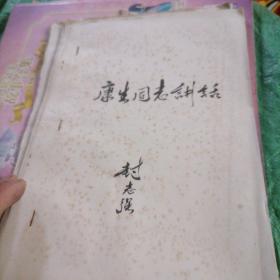 康生同志讲话
封志强